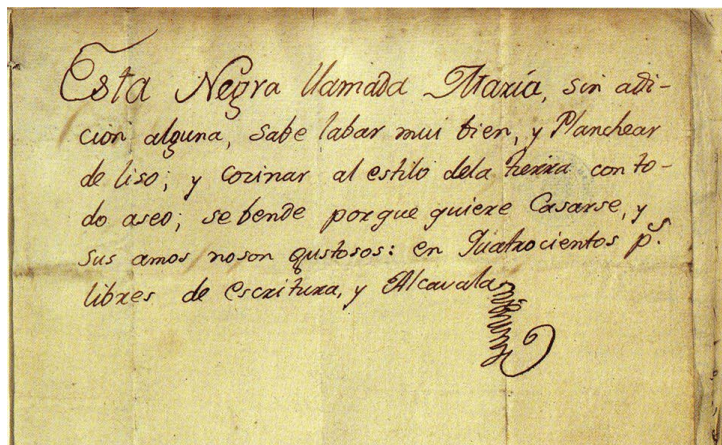 Esta Negra llamada María, sin adi-
cion alguna, sabe labar mui bien, y Planchear
de liso; y cozinar al estilo dela tierra con to-
do aseo; se bende porque quiere Casarse, y
sus amos noson gustosos: en Quatrocientos p.s
libres de escritura, y Alcavala